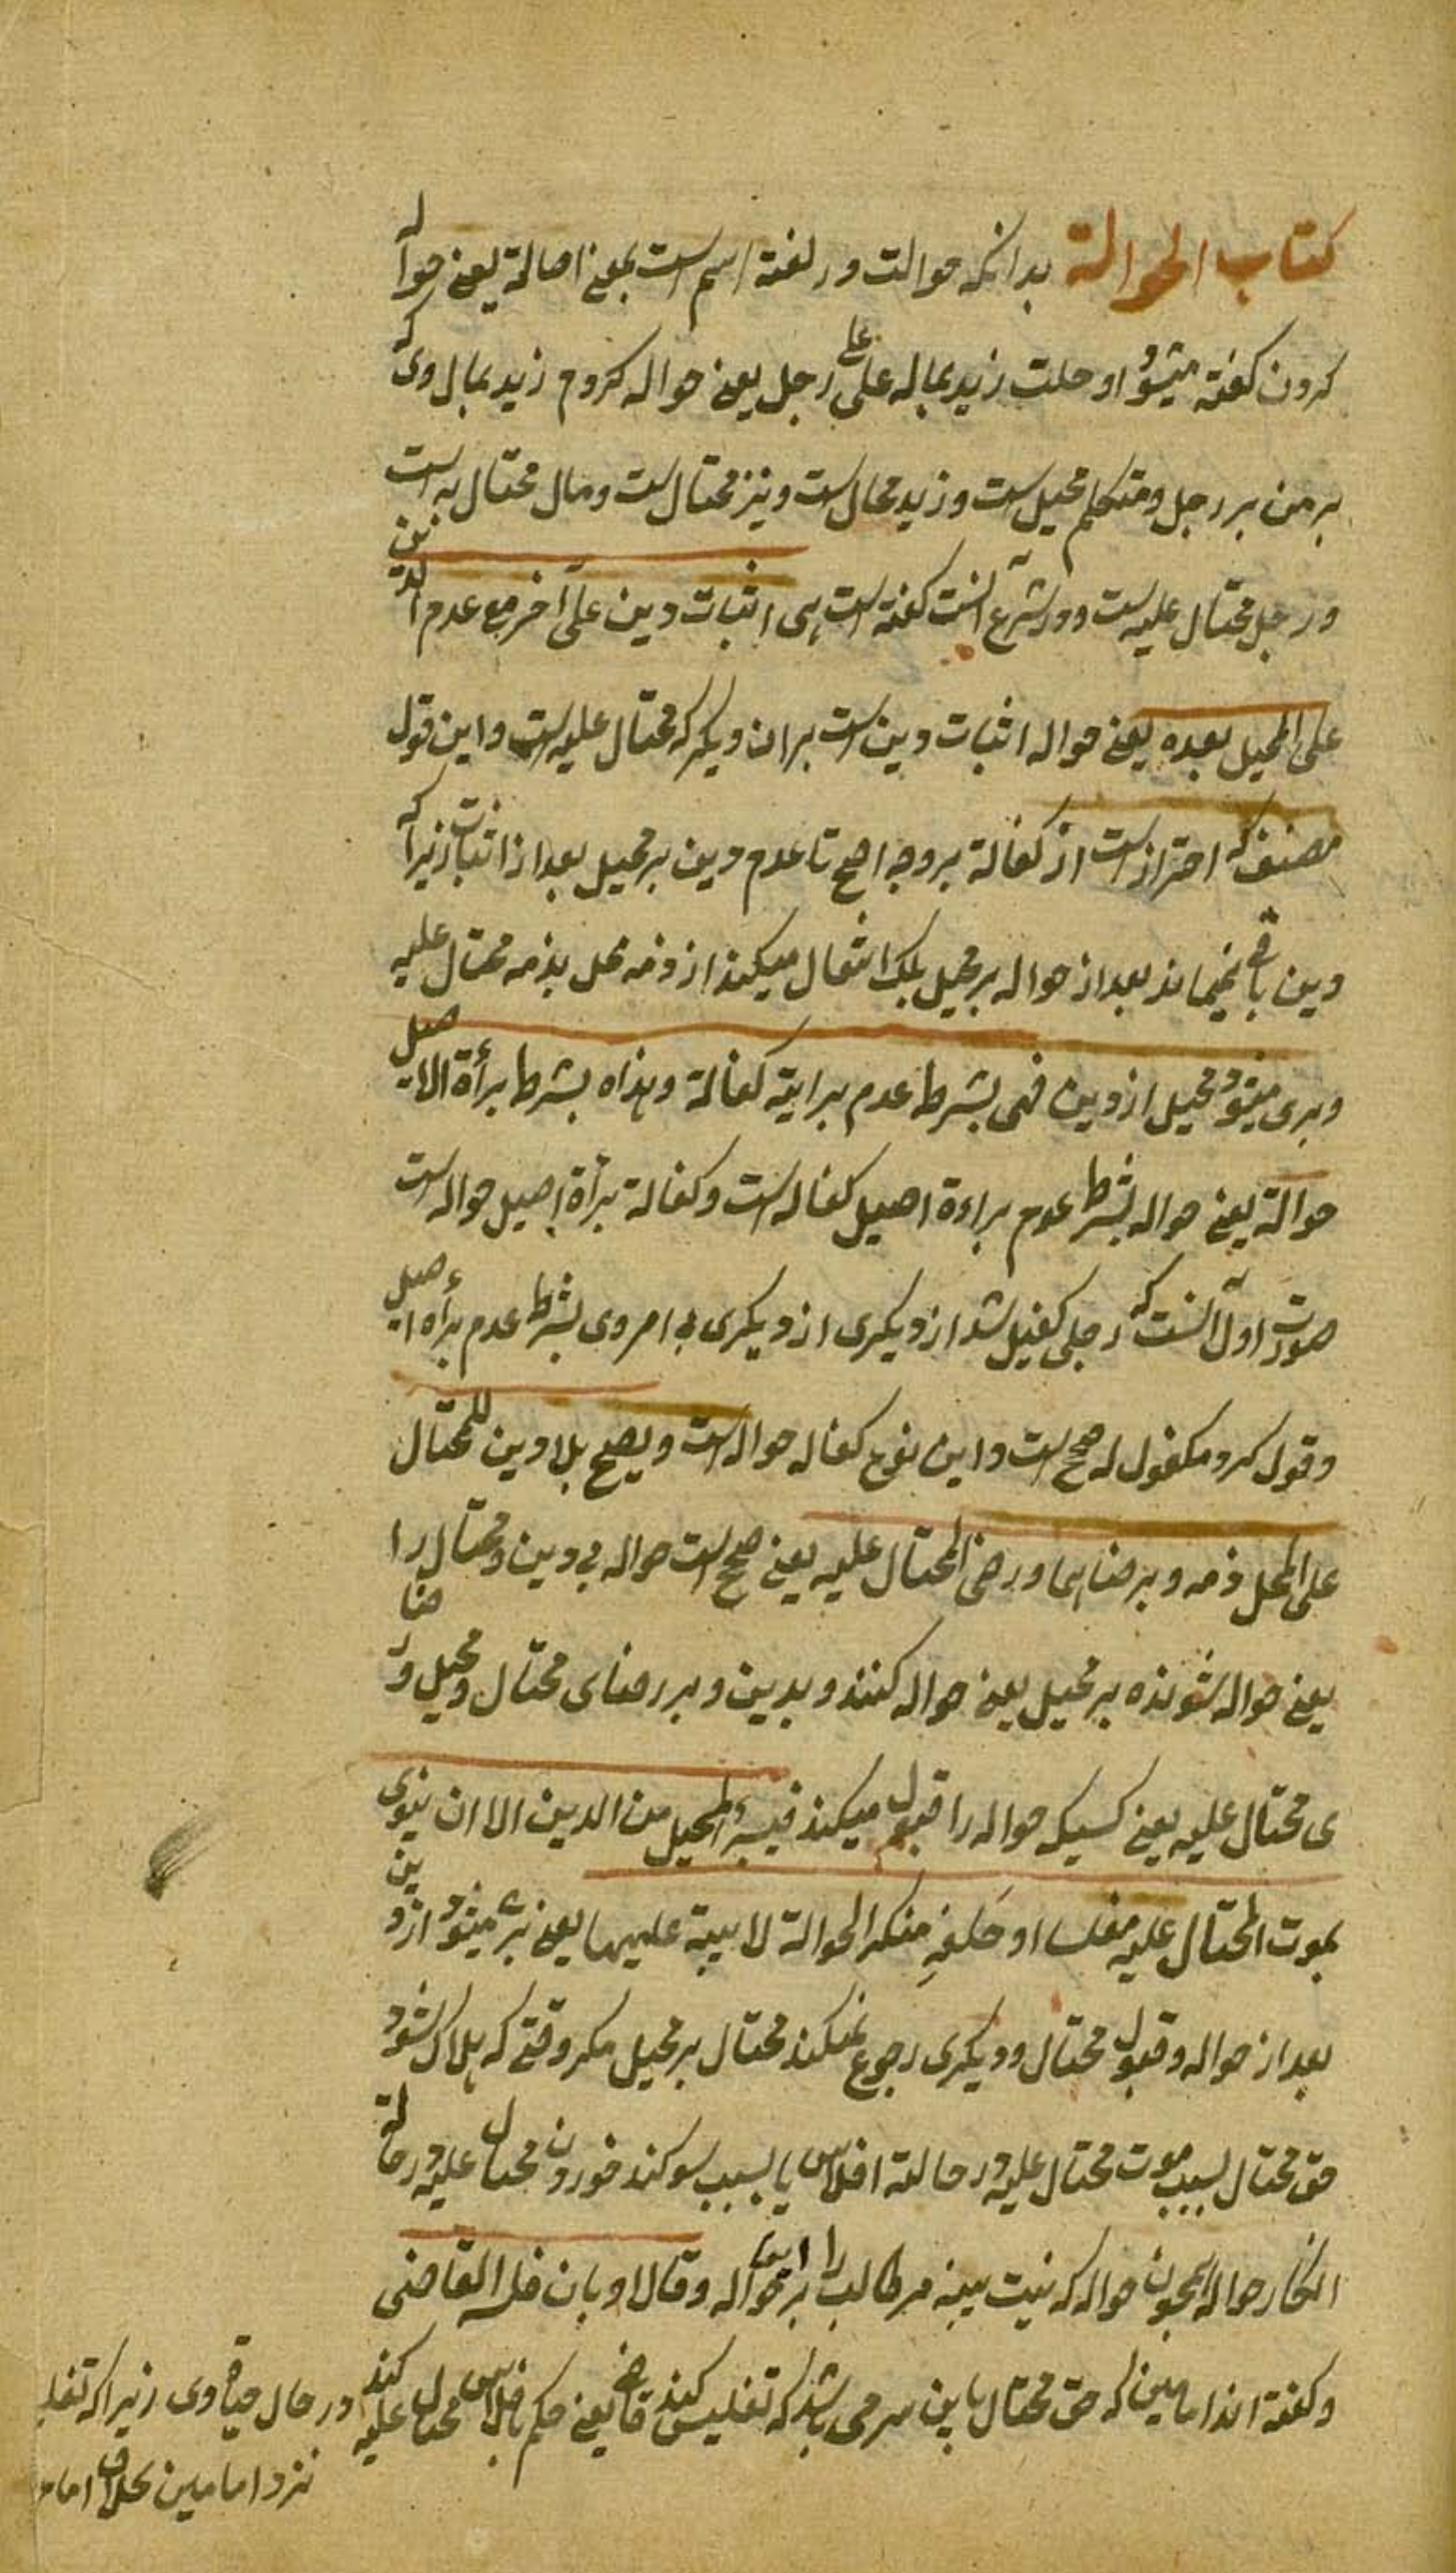 کتاب الحوالة بدانکه حوالت در لغة اسم است بمعنی احالة یعنی حواله
کردن گفته میشود احلت زید بماله علی رجل یعنی حواله کردم زید بمال وی که
بر من بر رجل و متکلم محیل است و زید محال است و نیز محتال است و مال محتال به است
و رجل محتال علیه است و در شرع آنست گفته است هی اثبات دین علی آخر مع عدم الدین
علی المحیل بعده یعنی حواله اثبات دین است بران دیگر که محتال علیه است و این قول
مصنف که احتراز است از کفالة بر وجه اصح تا عدم دین بر محیل بعد از اثبات زیرا که
دین باقی نمیماند بعد از حواله بر محیل بلکه انتقال میکند از ذمه محل بذمه محتال علیه
و بری میشود محیل از دین فهی بشرط عدم برایة کفالة و هذاه بشرط برأة الاصیل
حوالة یعنی حواله بشرط عدم براءة اصیل کفاله است و کفالة برأة اصیل حواله است
صورت اول آنست که رجلی کفیل شد از دیگری از دیگری بی امر وی بشرط عدم برأة اصیل
و قول کرد مکفول له صحیح است و این نوع کفاله حواله است و یصح بلا دین للمحتال
علی المحل ذمه و برضاهما و رضی المحتال علیه یعنی صحیح است حواله بی دین و محتال را
یعنی حواله شونده بر محیل یعنی حواله کننده و بدین و بر رضای محتال و محیل و رضا
ی محتال علیه یعنی کسیکه حواله را قبول میکند فیبرأ المحیل من الدین الا ان یتوی
بموت المحتال علیه مفلسا او حلفه منکر الحوالة لا بینة علیها یعنی بری میشود از دین
بعد از حواله و قبول محتال و دیگری رجوع نمیکند محتال بر محیل مگر وقتی که هلاک شود
حق محتال بسبب موت محتال علیه در حالة افلاس یا بسبب سوگند خوردن محتال علیه در حالة
انکار حواله بچون حواله که نیت بینه مر طالب را بر این حواله و قالا و بان فلسه القاضی
و گفته اند امامین که حق محتال باین سر می باشد که تفلیس کند قاضی یعنی حکم بافلاس محتال علیه کند در حال حیاة وی زیرا که تفلیـ
نزد امامین بخلاف امام